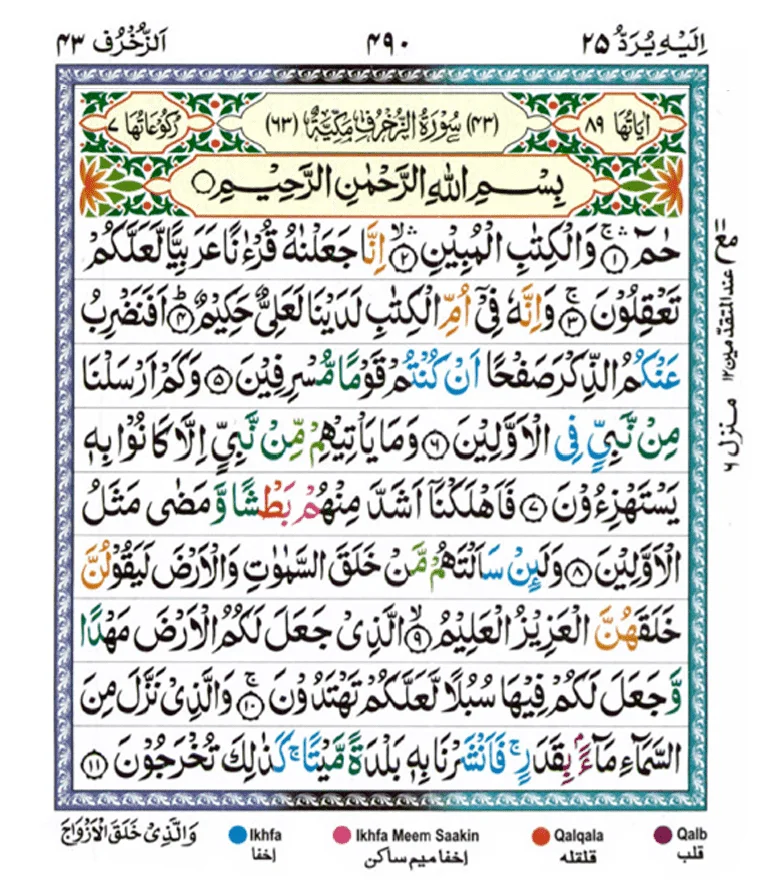 اِلَيْهِ يُرَدُّ ٢٥
٤٩٠
اَلزُّخْرُف ٤٣
اٰيَاتُهَا ٨٩
(٤٣) سُوْرَةُ الزُّخْرُفِ مَكِّيَّةٌ (٦٣)
رُكُوْعَاتُهَا ٧
بِسْمِ اللّٰهِ الرَّحْمٰنِ الرَّحِيْمِ
حٰمٓ ١ۚۛ وَالْكِتٰبِ الْمُبِيْنِ ٢ۙۛ اِنَّا جَعَلْنٰهُ قُرْءٰنًا عَرَبِيًّا لَّعَلَّكُمْ
تَعْقِلُوْنَ ٣ۚ وَاِنَّهٗ فِىْٓ اُمِّ الْكِتٰبِ لَدَيْنَا لَعَلِىٌّ حَكِيْمٌ ٤ؕ اَفَنَضْرِبُ
عَنْكُمُ الذِّكْرَ صَفْحًا اَنْ كُنْتُمْ قَوْمًا مُّسْرِفِيْنَ ٥ وَكَمْ اَرْسَلْنَا
مِنْ نَّبِىٍّ فِى الْاَوَّلِيْنَ ٦ وَمَا يَاْتِيْهِمْ مِّنْ نَّبِىٍّ اِلَّا كَانُوْا بِهٖ
يَسْتَهْزِءُوْنَ ٧ فَاَهْلَكْنَآ اَشَدَّ مِنْهُمْ بَطْشًا وَّمَضٰى مَثَلُ
الْاَوَّلِيْنَ ٨ وَلَئِنْ سَاَلْتَهُمْ مَّنْ خَلَقَ السَّمٰوٰتِ وَالْاَرْضَ لَيَقُوْلُنَّ
خَلَقَهُنَّ الْعَزِيْزُ الْعَلِيْمُ ٩ۙ الَّذِىْ جَعَلَ لَكُمُ الْاَرْضَ مَهْدًا
وَّجَعَلَ لَكُمْ فِيْهَا سُبُلًا لَّعَلَّكُمْ تَهْتَدُوْنَ ١٠ۚ وَالَّذِىْ نَزَّلَ مِنَ
السَّمَآءِ مَآءًۢ بِقَدَرٍۚ فَاَنْشَرْنَا بِهٖ بَلْدَةً مَّيْتًاۚ كَذٰلِكَ تُخْرَجُوْنَ ١١
مع عند المتقدّمين ١٢
منزل ٦
وَالَّذِىْ خَلَقَ الْاَزْوَاجَ
Ikhfa
اخفا
Ikhfa Meem Saakin
اخفا میم ساکن
Qalqala
قلقله
Qalb
قلب